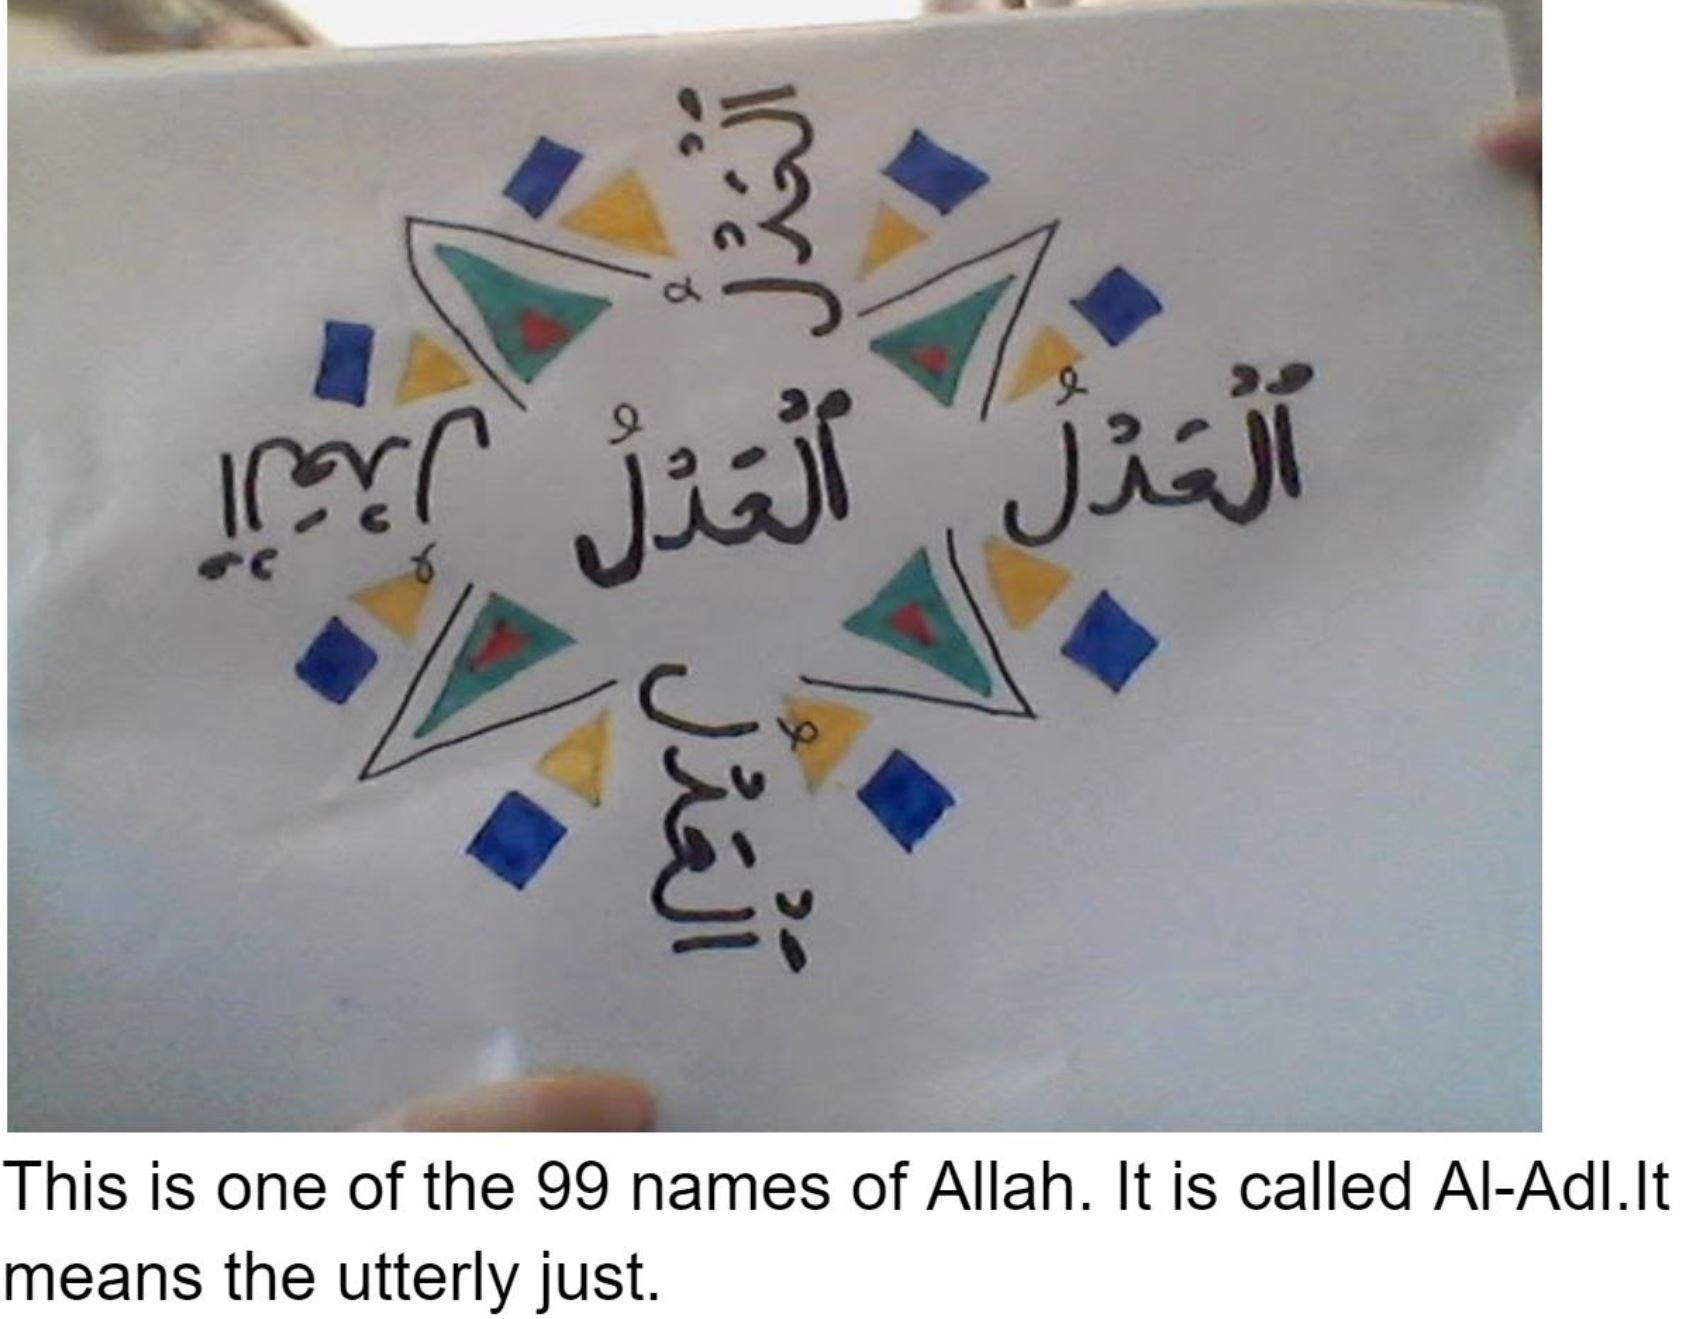 اَلْعَدْلُ
اَلْعَدْلُ
اَلْعَدْلُ
اَلْعَدْلُ
اَلْعَدْلُ
This is one of the 99 names of Allah. It is called Al-Adl.It
means the utterly just.